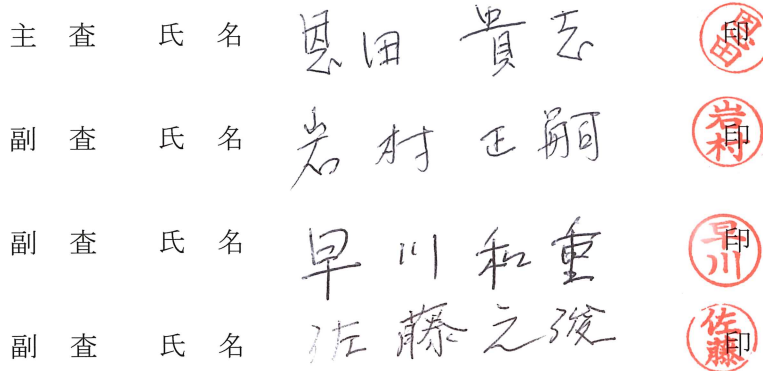 主査 氏名 恩田 貴志 印 恩田
副査 氏名 岩村 正嗣 印 岩村
副査 氏名 早川 和重 印 早川
副査 氏名 佐藤 之俊 印 佐藤